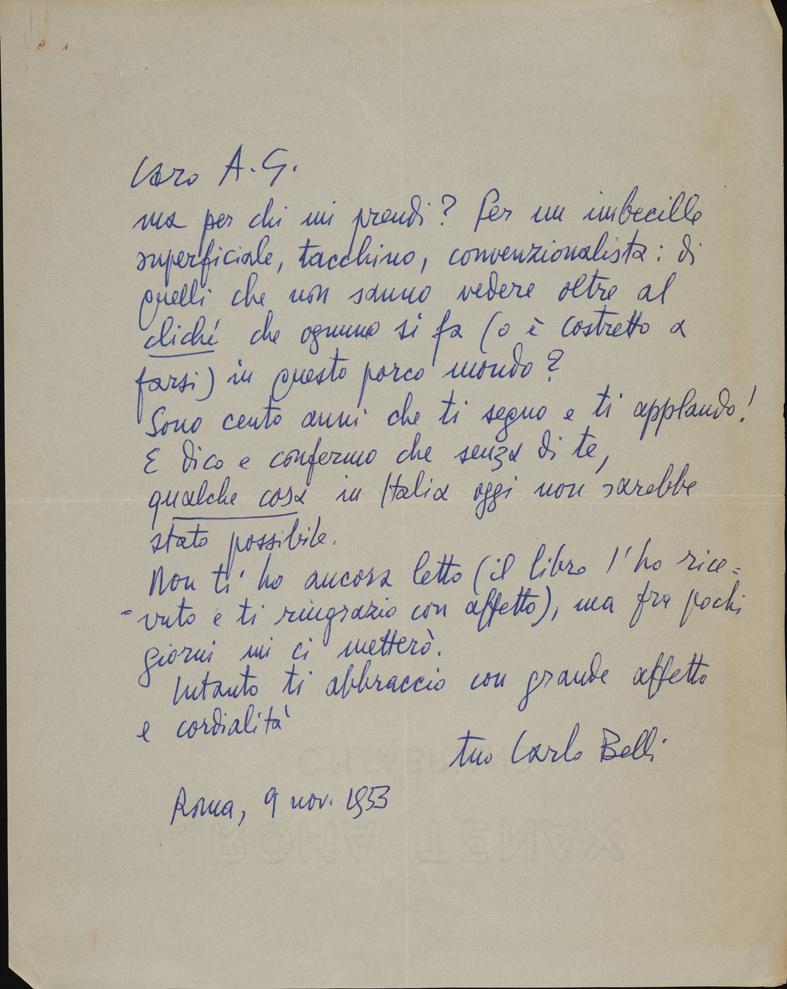 Caro A. G.
ma per chi mi prendi? Per un imbecille
superficiale, tacchino, convenzionalista: di
quelli che non sanno vedere oltre al
cliché che ognuno si fa (o è costretto a
farsi) in questo porco mondo?
Sono cento anni che ti seguo e ti applaudo!
E dico e confermo che senza di te,
qualche cosa in Italia oggi non sarebbe
stato possibile.
Non ti ho ancora letto (il libro l'ho rice=
=vuto e ti ringrazio con affetto), ma fra pochi
giorni mi ci metterò.
Intanto ti abbraccio con grande affetto
e cordialità
tuo Carlo Belli
Roma, 9 nov. 1953
ROMA TENAX